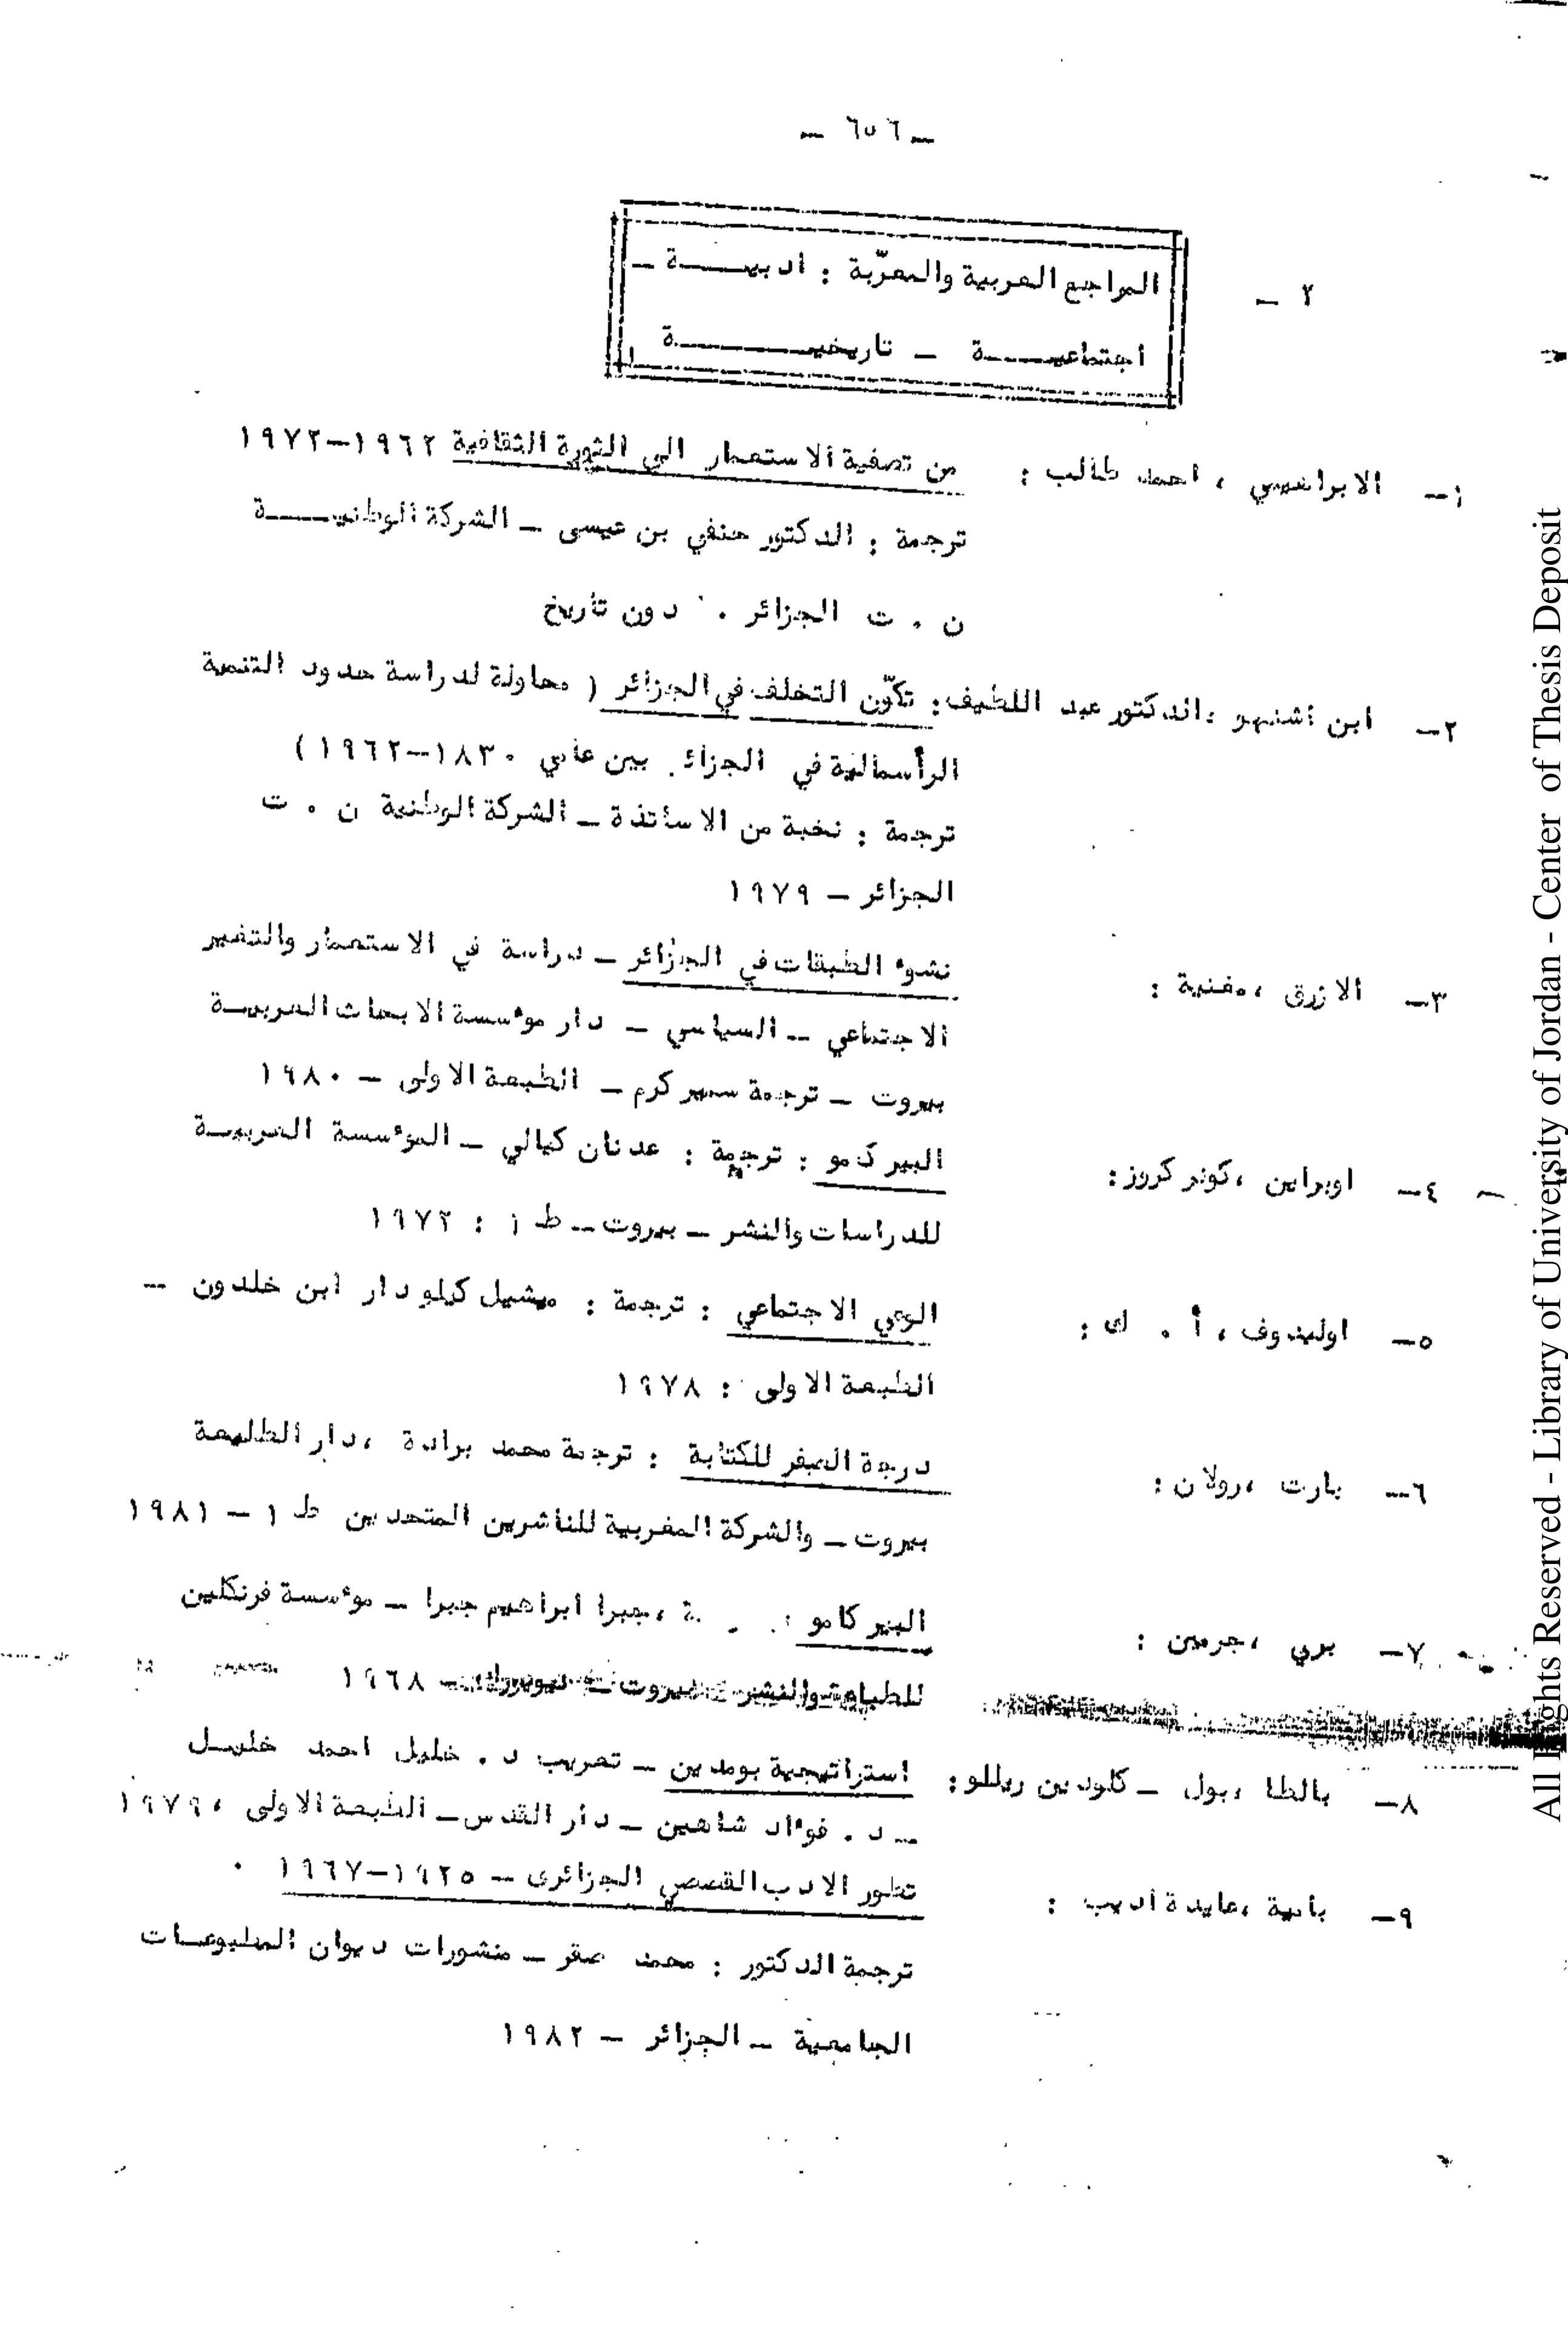 — ٦٥٦ —
٢ — المراجع العربية والمعرّبة : ادبيـــــة —
اجتماعيـــــة — تاريخيـــــــة
١— الابراهيمي ، احمد طالب : من تصفية الاستعمار الى الثورة الثقافية ١٩٦٢—١٩٧٢
ترجمة : الدكتور حنفي بن عيسى — الشركة الوطنيـــــة
ن . ت الجزائر . دون تاريخ
٢— ابن اشنهو ،الدكتور عبد اللطيف: تكوّن التخلف في الجزائر ( محاولة لدراسة حدود التنمية
الرأسمالية في الجزائر بين عامي ١٨٣٠—١٩٦٢ )
ترجمة : نخبة من الاساتذة — الشركة الوطنية ن . ت
الجزائر — ١٩٧٩
٣— الازرق ،مغنية : نشوء الطبقات في الجزائر — دراسة في الاستعمار والتغير
الاجتماعي — السياسي — دار مؤسسة الابحاث العربيـة
بيروت — ترجمة سمير كرم — الطبعة الاولى — ١٩٨٠
٤— اوبراين ،كونر كروز: البير كامو : ترجمة : عدنان كيالي — المؤسسة العربيـة
للدراسات والنشر — بيروت — ط ١ : ١٩٧٢
٥— اوليدوف ، أ . ك : الوعي الاجتماعي : ترجمة : ميشيل كيلو دار ابن خلدون —
الطبعة الاولى : ١٩٧٨
٦— بارت ،رولان : درجة الصفر للكتابة : ترجمة محمد برادة ،دار الطليعة
بيروت — والشركة المغربية للناشرين المتحدين ط ١ — ١٩٨١
٧— بري ،جرمين : البير كامو : ة ،جبرا ابراهيم جبرا — مؤسسة فرنكلين
للطباعة والنشر — بيروت — نيويورك — ١٩٦٨
٨— بالطا ،بول — كلودين ريللو : استراتيجية بومدين — تعريب د . خليل احمد خليـل
— د . فؤاد شاهين — دار القدس — الطبعة الاولى ، ١٩٧٩
٩— بامية ،عايدة اديب : تطور الادب القصصي الجزائرى — ١٩٢٥—١٩٦٧ .
ترجمة الدكتور : محمد صقر — منشورات ديوان المطبوعـات
الجامعية — الجزائر — ١٩٨٢
All Rights Reserved - Library of University of Jordan - Center of Thesis Deposit